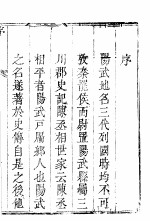 序
陽武地名三代列國時均不可
攷秦龍侯而尉置陽武縣屬三
川郡史記陳丞相世家云陳丞
相平者陽武戶牖鄉人也陽武
之名遂著於史傳自是之後德